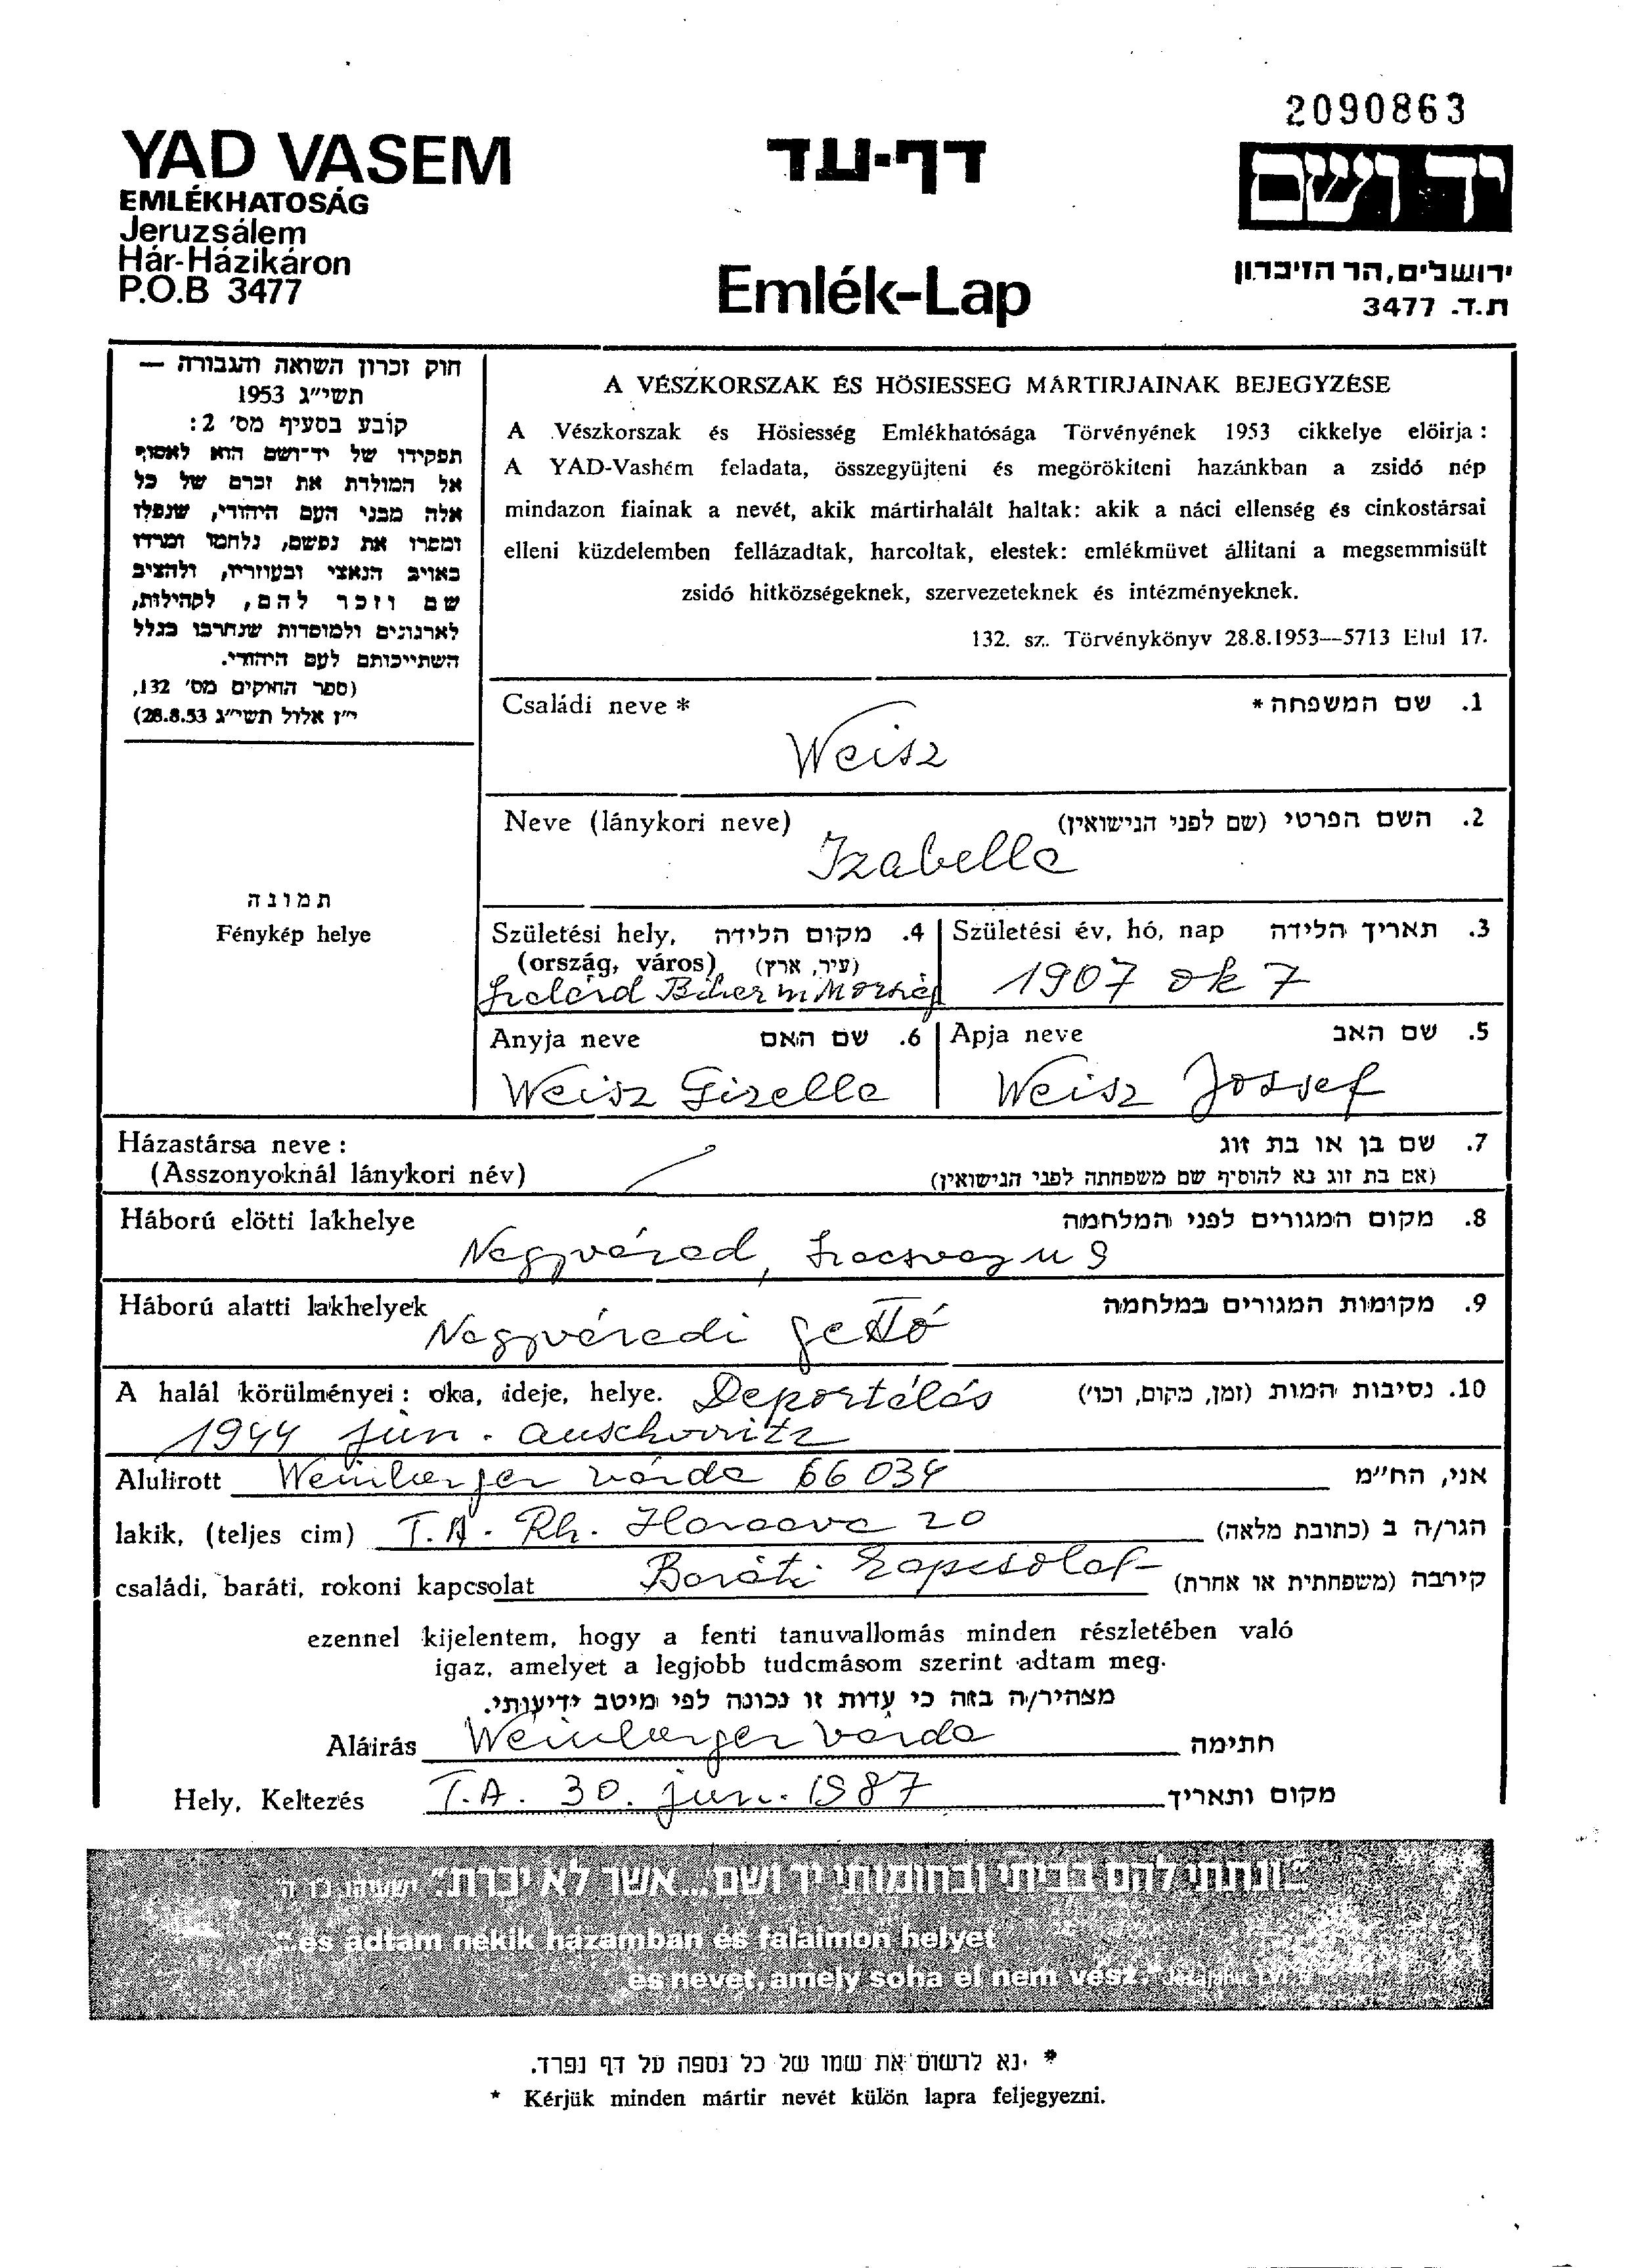 2090863
YAD VASEM
EMLÉKHATOSÁG
Jeruzsálem
Hár-Házikáron
P.O.B 3477
דף-עד
Emlék-Lap
יד ושם
ירושלים, הר הזיכרון
ת.ד. 3477
חוק זכרון השואה והגבורה —
תשי"ג 1953
קובע בסעיף מס' 2:
תפקידו של יד-ושם הוא לאסוף
אל המולדת את זכרם של כל
אלה מבני העם היהודי, שנפלו
ומסרו את נפשם, נלחמו ומרדו
באויב הנאצי ובעוזריו, ולהציב
שם וזכר להם, לקהילות,
לארגונים ולמוסדות שנחרבו בגלל
השתייכותם לעם היהודי.
(ספר החוקים מס' 132,
י"ז אלול תשי"ג 28.8.53)
תמונה
Fénykép helye
A VÉSZKORSZAK ÉS HÖSIESSEG MÁRTIRJAINAK BEJEGYZÉSE
A Vészkorszak és Hösiesség Emlékhatósága Törvényének 1953 cikkelye elöirja:
A YAD-Vashém feladata, összegyüjteni és megörökiteni hazánkban a zsidó nép
mindazon fiainak a nevét, akik mártirhalált haltak: akik a náci ellenség és cinkostársai
elleni küzdelemben fellázadtak, harcoltak, elestek: emlékmüvet állitani a megsemmisült
zsidó hitközségeknek, szervezeteknek és intézményeknek.
132. sz. Törvénykönyv 28.8.1953—5713 Elul 17.
Családi neve * 1. שם המשפחה *
Weisz
Neve (lánykori neve) 2. השם הפרטי (שם לפני הנישואין)
Izabella
Születési hely, 4. מקום הלידה
(ország, város) (עיר, ארץ)
Szelárd Bihar m
Születési év, hó, nap 3. תאריך הלידה
1907 ok 7
Anyja neve 6. שם האם
Weisz Gizella
Apja neve 5. שם האב
Weisz Jossef
Házastársa neve: 7. שם בן או בת זוג
(Asszonyoknál lánykori név) (אם בת זוג נא להוסיף שם משפחתה לפני הנישואין)
Háború elötti lakhelye 8. מקום המגורים לפני המלחמה
Nagyvárad, u 9
Háború alatti lakhelyek 9. מקומות המגורים במלחמה
Nagyváradi gettó
A halál körülményei: oka, ideje, helye. Deportálás 10. נסיבות המות (זמן, מקום, וכו')
1944 jun. Auschwitz
Alulirott Weinberger Várda 66034 אני, הח"מ
lakik, (teljes cim) T.A. Rh. 20 הגר/ה ב (כתובת מלאה)
családi, baráti, rokoni kapcsolat Baráti kapcsolat קירבה (משפחתית או אחרת)
ezennel kijelentem, hogy a fenti tanuvallomás minden részletében való
igaz, amelyet a legjobb tudcmásom szerint adtam meg.
מצהיר/ה בזה כי עדות זו נכונה לפי מיטב ידיעותי.
Aláirás Weinberger Várda חתימה
Hely, Keltezés T.A. 30. jun. 1987 מקום ותאריך
"ונתתי להם בביתי ובחומותי יד ושם...אשר לא יכרת" ישעיהו נ"ו ה'
"..és adtam nékik házamban és falaimon helyet
és nevet, amely soha el nem vész."
* נא לרשום את שמו של כל נספה על דף נפרד.
* Kérjük minden mártir nevét külön lapra feljegyezni.